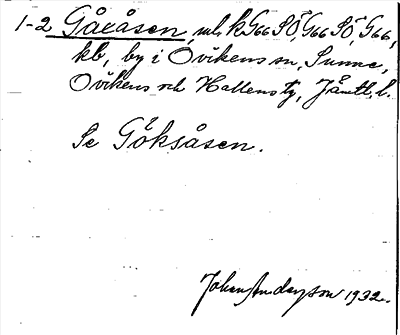 1-2 Gåxåsen, uk, k, G66 SÖ, G66 SÖ, G66,
kb, by i Ovikens sn, Sunne,
Ovikens och Hallens tg, Jämtl. l.
Se Göksåsen.
Johan Anderson 1932.